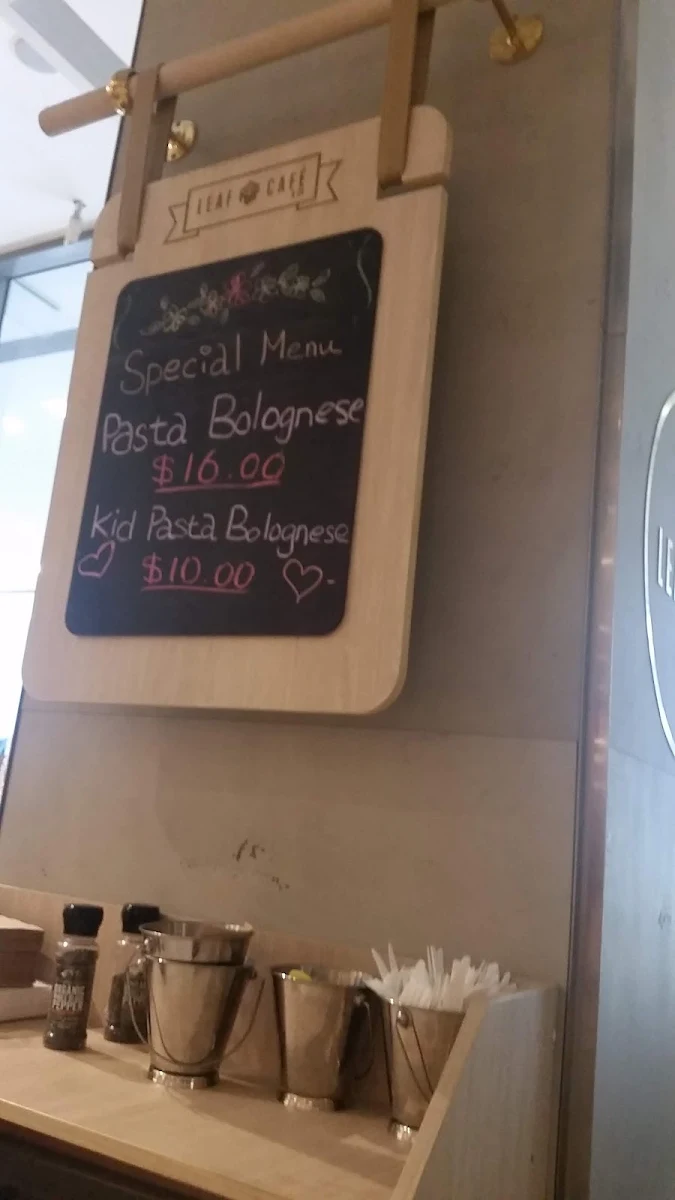 LEAF CAFÉ
Special Menu
Pasta Bolognese
$16.00
Kid Pasta Bolognese
$10.00
ORGANIC
PEPPER
PEPPER
LE